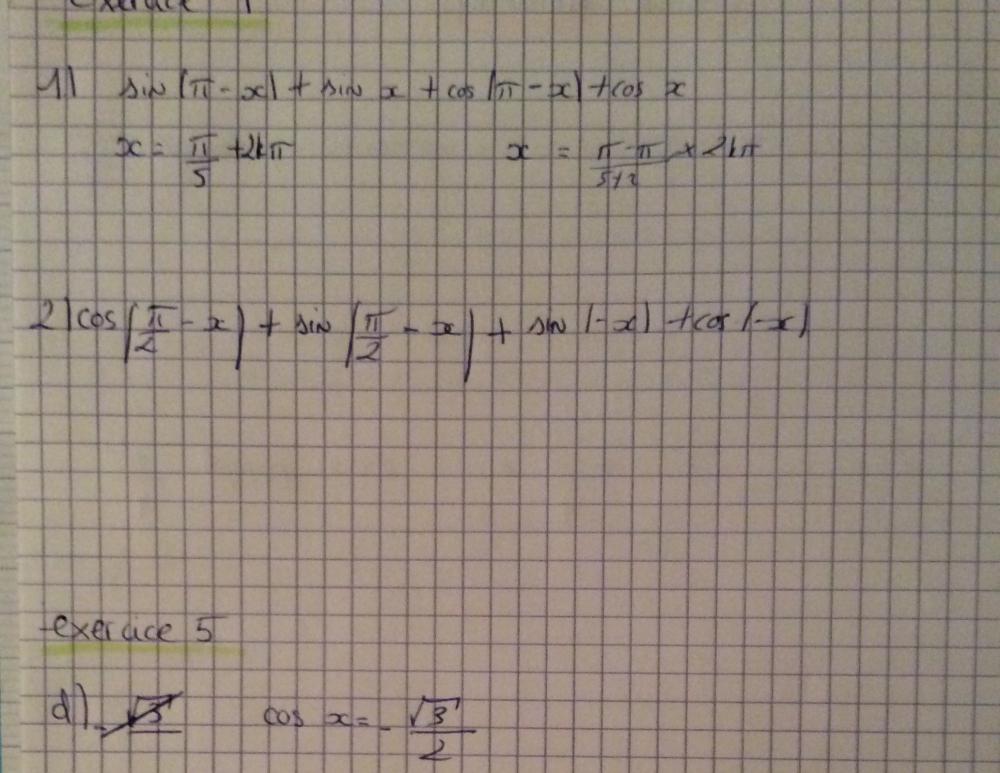 exercice 1
1) sin(π-x) + sin x + cos(π-x) + cos x
x = π/5 + 2kπ x = π-π/5+2 + 2kπ
2) cos(π/2 - x) + sin(π/2 - x) + sin(-x) + cos(-x)
exercice 5
d) cos x = - √3/2